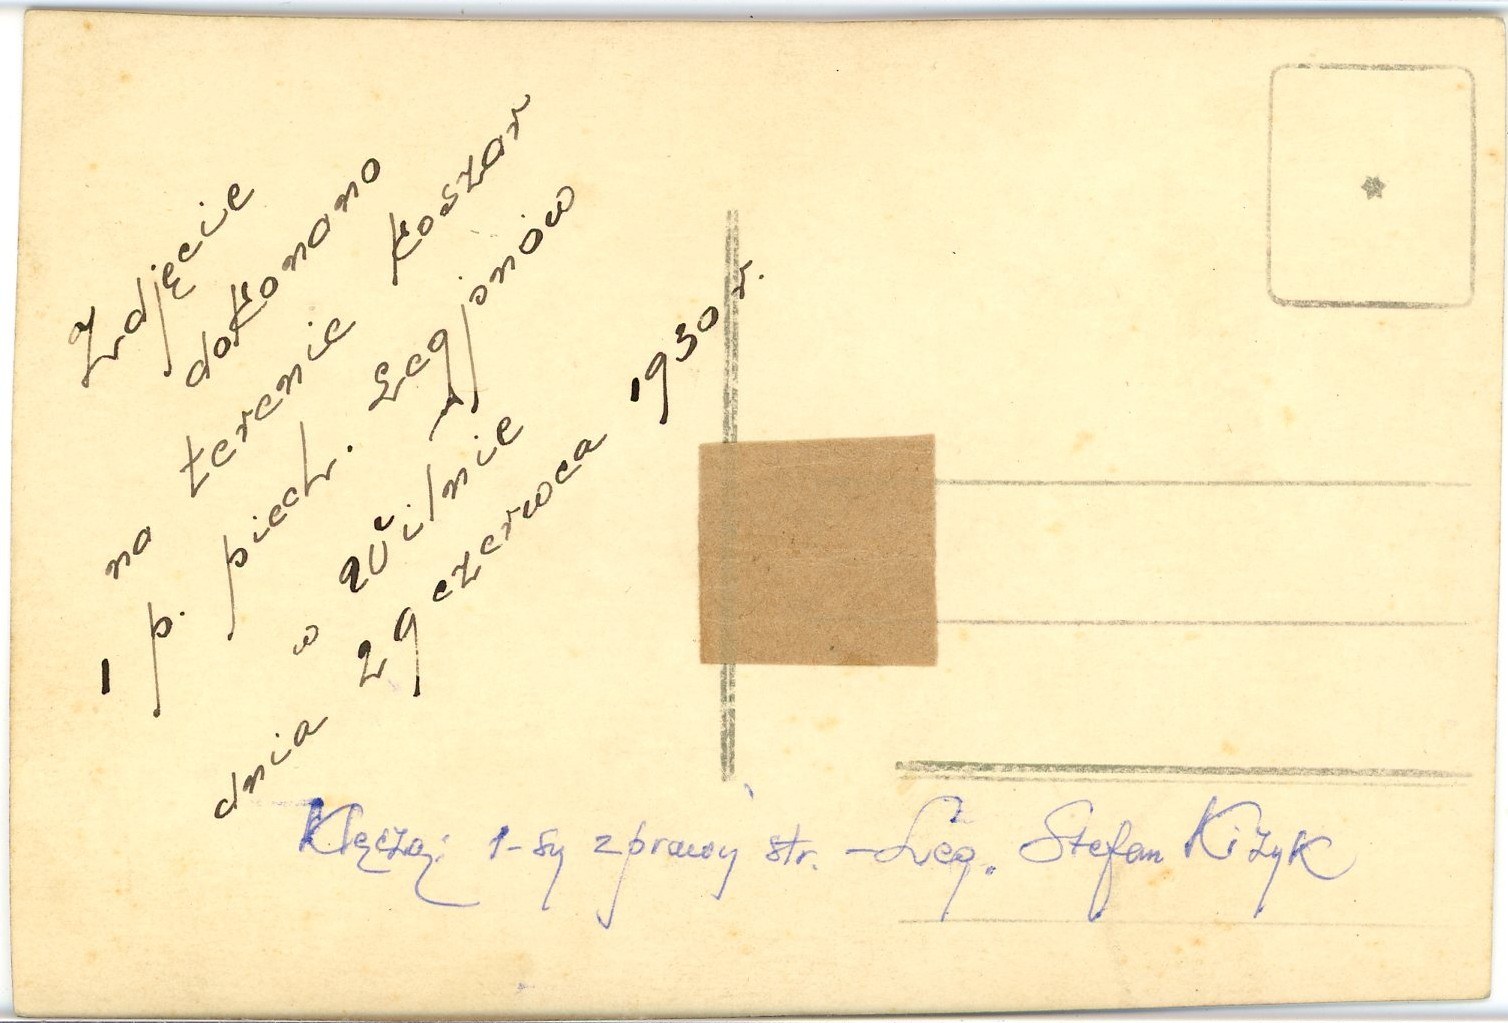 Zdjęcie
dokonano
na terenie koszar
1 p. piech. Legjonów
w Wilnie
dnia 29 czerwca 1930 r.
Klęczą: 1-sy z prawej str. - Leg. Stefan Kiżyk